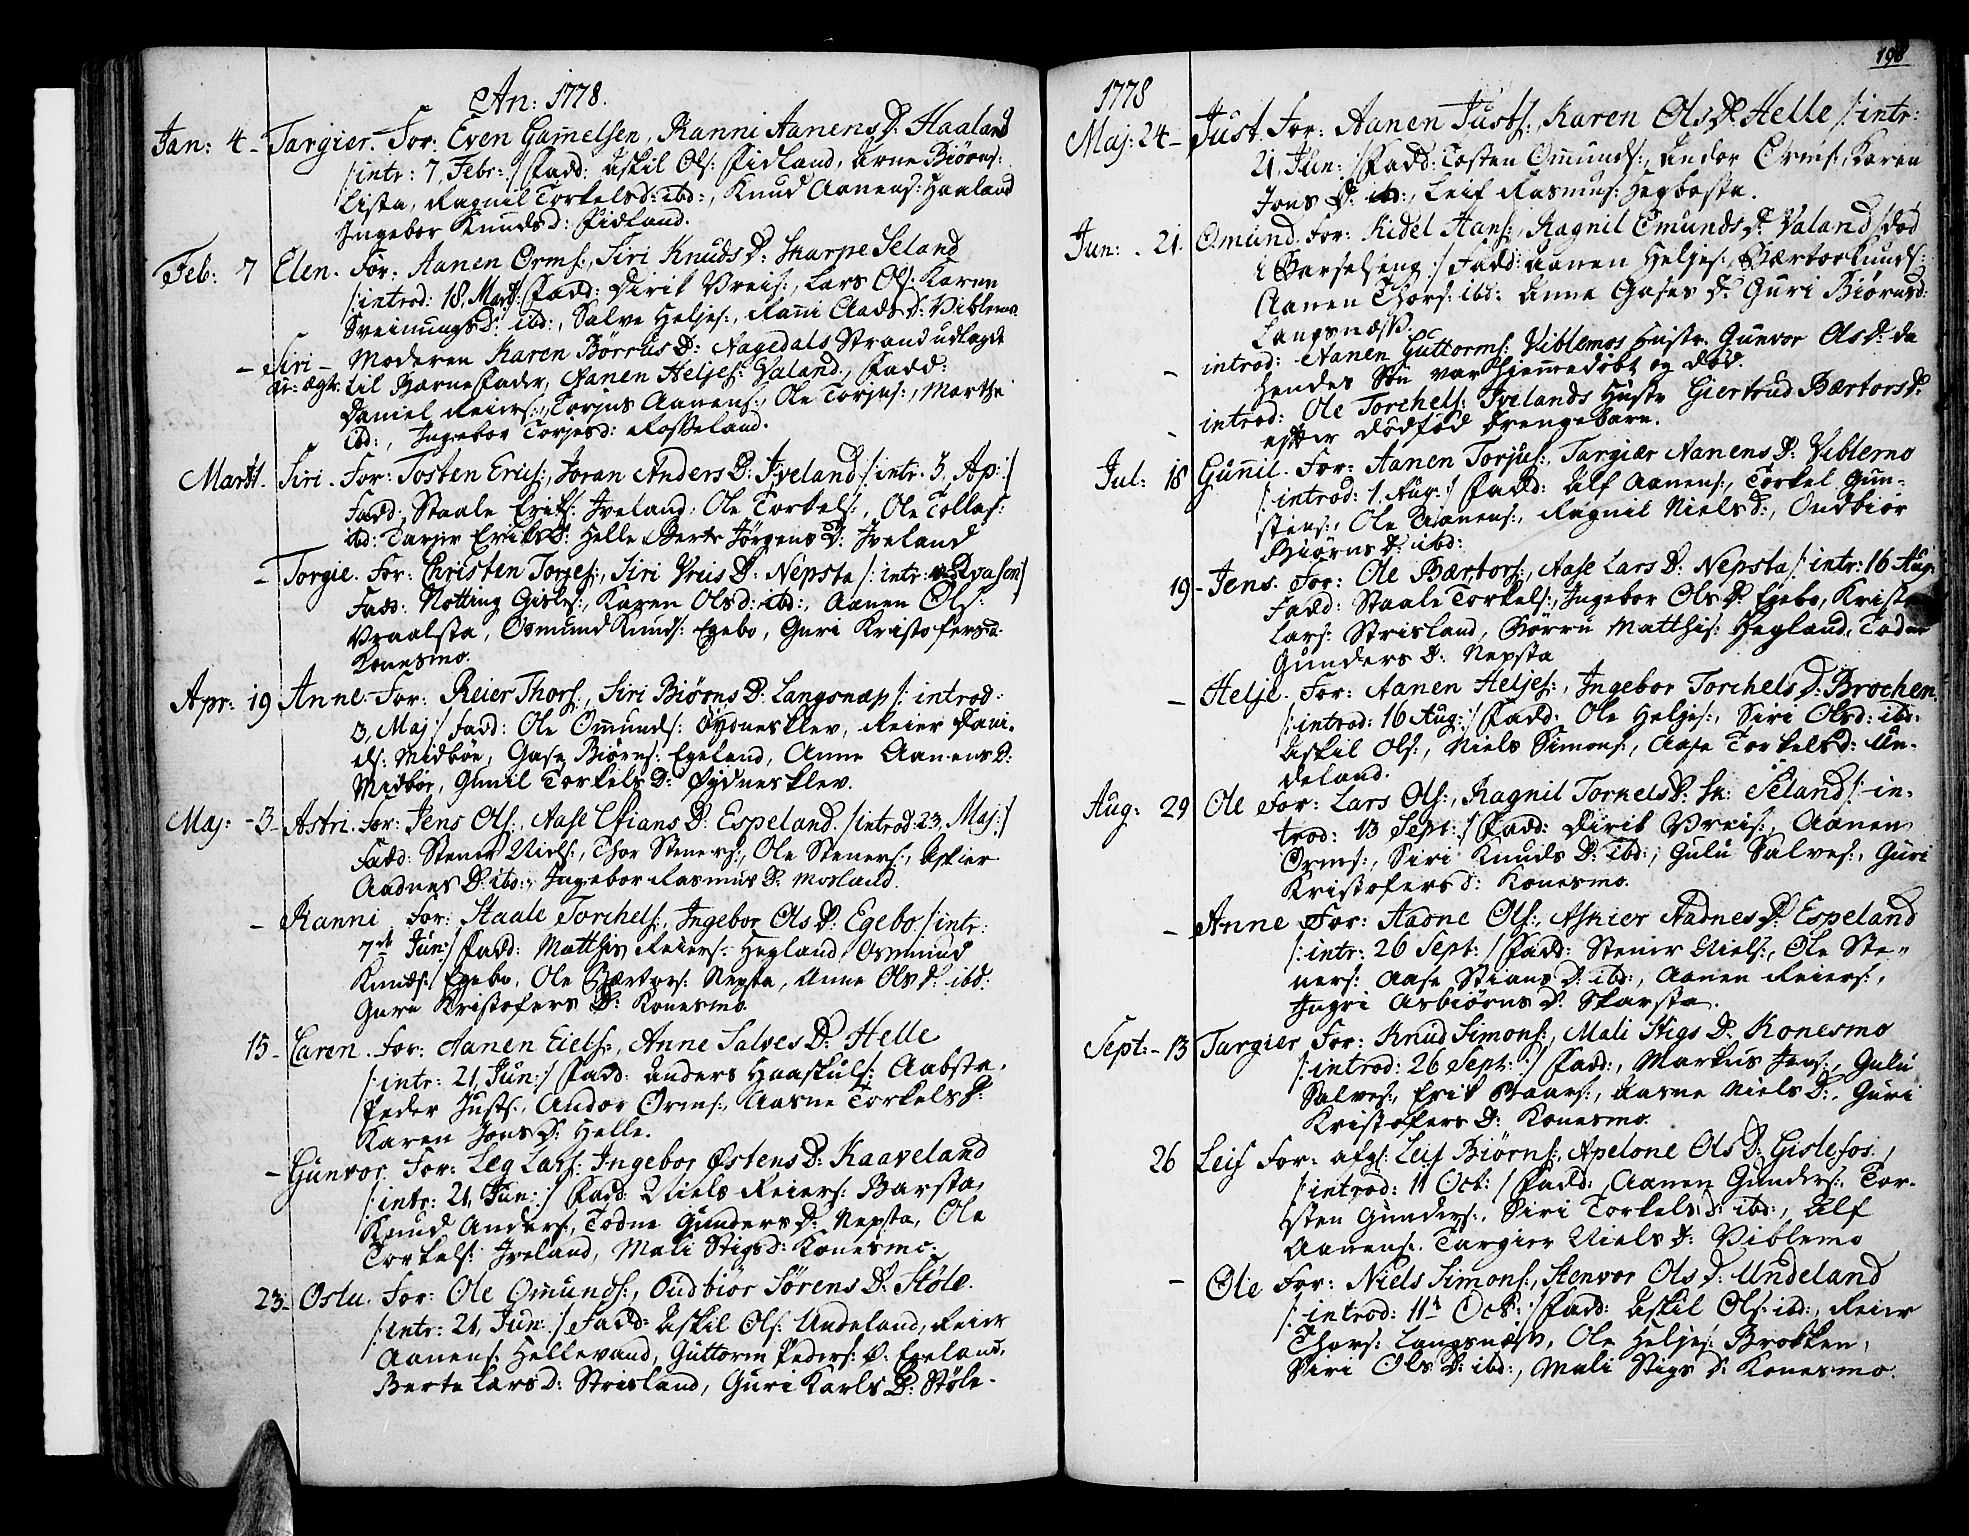 An: 1778.
Jan: 4 - Targier. For: Even Gamelsen, Ranni Aanens D: Haaland
/: intr: 7, Febr: :/ Fadd: Askil Ols: Fidland, Arne Biörns:
Lista, Ragnil Torkels d: ibd:, Knud Aanens: Haaland
Ingebor Knuds d: Fidland.
Feb: 7 Elen. For: Aanen Orms:, Siri Knuds D: Skarpe Seland
/: introd: 18. Mart: Fadd: Dirik Vreis:, Lars Ols: Karen
Sveinungs D: ibd:, Salve Heljes:, Ranni Aads D: Viblemo
- Siri - Moderen Karen Börrus D: Nagedals Strand udlagde
til Barnefader, Aanen Heljes: Valand, Fadd:
Daniel Reiers:, Torjus Aanens:, Ole Torjus:, Marthe
ibd:, Ingebor Torjes d: Rosseland.
Mart 1. Siri. For: Tosten Erics:, Joran Anders D: Iveland /: intr: 5, Ap: :/
Fadd: Staale Eriks: Iveland, Ole Torkels:, Ole Tollas:
ibd: Tarjer Eriks D: Helle Berte Jörgens D: Iveland
- Torgie. For: Christen Torjes:, Siri Vreis D: Nepsta /: intr:
Fadd: Notting Gisles:, Karen Ols d: ibd:, Aanen Ols:
Vraalsta, Osmund Knuds: Egebo, Guri Kristofers d:
Konesmo.
Apr: 19 Anne. For: Reier Thors:, Siri Biörns D: Langsnæs /: introd:
3, Maj :/ Fadd: Ole Omunds: Öydnesklev, Reier Dani-
els: Midböe, Gase Biörns: Egeland, Anne Aanens D:
Midböe, Gunil Torkels D: Øydnesklev.
Maj: -3- Astri. For: Jens Ols:, Aase Stians D: Espeland. /: introd: 23, Maj: :/
Fadd: Stener Niels:, Thor Steners:, Ole Steners:, Askier
Aadnes D: ibd:, Ingebor Rasmus D: Mosland.
- Ranni For: Staale Torchels:, Ingebor Ols D: Egebo /: intr:
7de Jun: :/ Fadd: Matthis Reiers: Hegland Osmund
Knuds: Egebo, Ole Bærtors: Nepsta, Anne Ols D: ibd:
Gure Kristofers D: Konesmo.
15 - Caren. For: Aanen Eiels:, Anne Salves D: Helle
/: intr: 21, Jun: :/ Fadd: Anders Haaskuls: Aabsta.
Peder Justs:, Andor Orms:, Aasne Torkels D:
Karen Jons D: Helle.
- Gunvor. For: Leg Lars: Ingebor Østens D: Kaaveland
/: intr: 21, Jun: :/ Fadd: Niels Reiers: Barsta,
Knud Anders:, Todne Gunders D: Nepsta, Ole
Torkels: Iveland, Mali Stigs d: Konesmo.
23 - Oslu. For: Ole Omunds:, Oudbiör Sörens D: Støle
/: intr: 21, Jun: :/ Fadd: Askil Ols: Undeland, Reier
Aanens: Hellevand, Guttorm Peders: Egeland,
Berte Lars D: Strisland, Guri Karls D: Støle.
198
1778
Maj: 24 - Just. For: Aanen Justs:, Karen Ols D: Helle /: intr:
21, Jun: :/ Fadd: Tosten Omunds:, Andor Orms:, Karen
Jons D: ibd:, Leif Rasmus: Hegbosta.
Jun: 21. Omund. For: Kidel Hans:, Ragnil Omunds D: Valand /: død
i Barselseng :/ Fadd: Aanen Heljes:, Bærtor Lunds:
Aanen Thors: ibd: Anne Gases D: Guri Biörns d:
Langsnæss.
- introd: Aanen Guttorms: Viblemos Hustr: Gunvor Ols D: da
hendes Sön var hiemmedöbt og död.
- introd: Ole Torchels: Ivelands Hustr: Giertrud Bærtors D:
efter dödföd drengebarn.
Jul: 18 Gunnil. For: Aanen Torjus:, Targier Aanens D: Viblemo
/: introd: 1, Aug: :/ Fadd: Alf Aanens:, Torkel Gun-
stens:, Ole Aanens:, Ragnil Niels D:, Oudbiör
Biörns D: ibd:
19 - Jens. For: Ole Bærtors:, Aase Lars D: Nepsta /: intr: 16 Aug:
Fadd: Staale Torkels:, Ingebor Ols D: Egebo, Kristen
Lars: Strisland, Börru Matthis: Hegland, Todne
Gunders D: Nepsta
- Helje. For: Aanen Heljes:, Ingebor Torchels D: Brochen.
/: introd: 16 Aug: :/ Fadd: Ole Heljes:, Siri Ols d: ibd:
Askil Ols:, Niels Simons:, Aase Torkels d: Un-
deland.
Aug: 29 Ole For: Lars Ols:, Ragnil Tornels D: Sk: Seland /: in-
trod: 13 Sept: :/ Fadd: Dirik Vreis:, Aanen
Orms:, Siri Knuds D: ibd:, Gulu Salves:, Guri
Kristofers d: Konesmo.
- Anne For: Aadne Ols:, Askier Aadnes D: Espeland
/: intr: 26 Sept: :/ Fadd: Stener Niels:, Ole Ste-
ners: Aase Stians D: ibd:, Aanen Reiers:,
Ingri Asbiörns D: Skarsta.
Sept: - 13 Targier For: Knud Simons:, Mali Stigs D: Konesmo
/: introd: 26 Sept: :/ Fadd:, Markus Jens:, Gulu
Salves:, Erik Baars:, Aasne Niels D:, Guri
Kristofers D: Konesmo.
26 Leif For: afg: Leif Biörns:, Apelone Ols D: Gislefos.,
/: introd: 11 Oct: :/ Fadd:, Aanen Gunders:, Tor-
sten Gunders:, Siri Torkels D: ibd:, Alf
Aanens:. Targier Niels D: Viblemo
- Ole For: Niels Simons:, Stenvor Ols D: Undeland
/: introd: 11te Oct: :/ Fadd: Askil Ols: ibd:, Reier
Thors: Langsnæss, Ole Heljes: Brokken,
Siri Ols D: ibd:, Mali Stigs D: Konesmo.